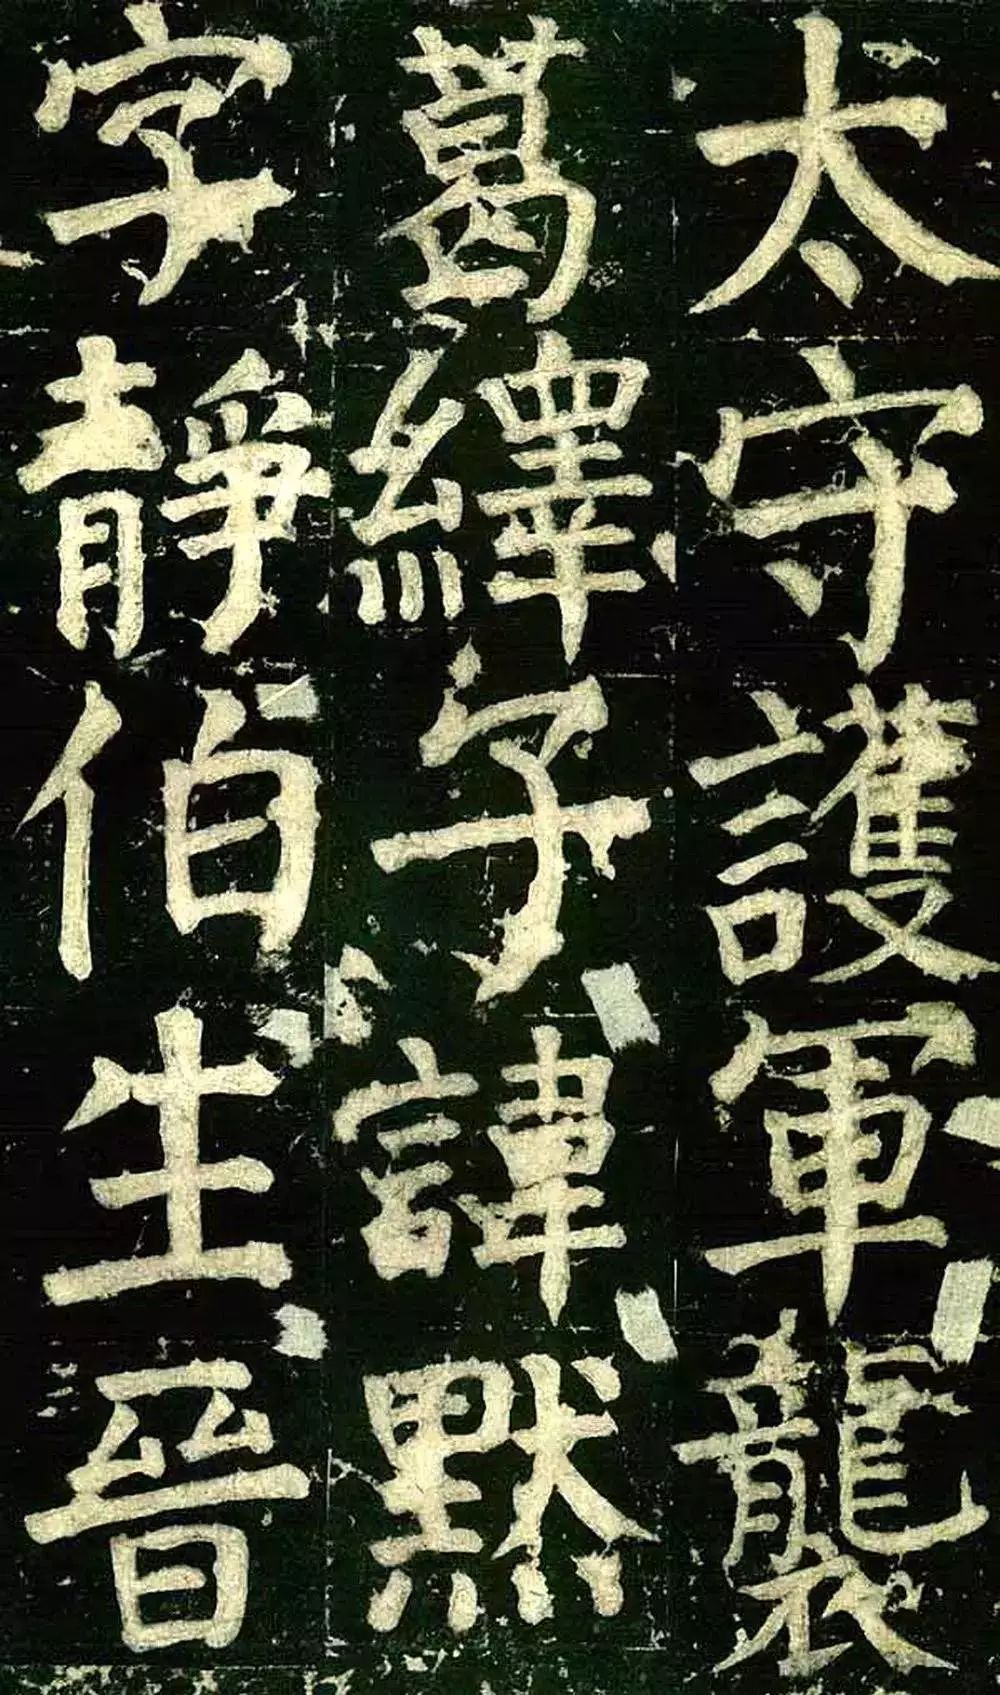 太守護軍襲
葛繹子諱默
字靜伯生晉